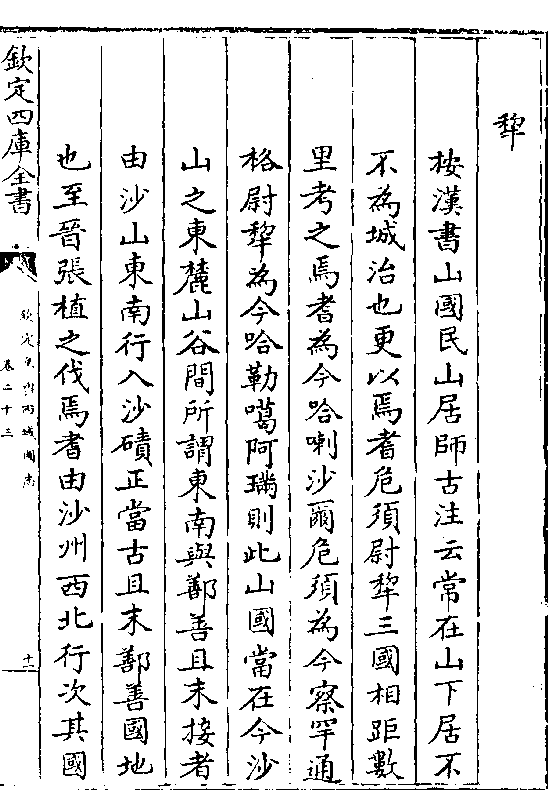 犂
按漢書山國民山居師古注云常在山下居不
不為城治也更以焉耆危須尉犂三國相距數
里考之焉耆為今哈喇沙爾危須為今察罕通
格尉犂為今哈勒噶阿璊則此山國當在今沙
山之東麓山谷間所謂東南與鄯善且末接者
由沙山東南行入沙磧正當古且末鄯善國地
也至晉張植之伐焉耆由沙州西北行次其國
欽定四庫全書
欽定皇輿西域圖志
卷二十三
十一